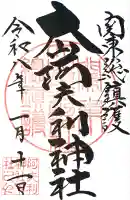 関東総鎮護
大山阿夫利神社
令和八年一月十一日